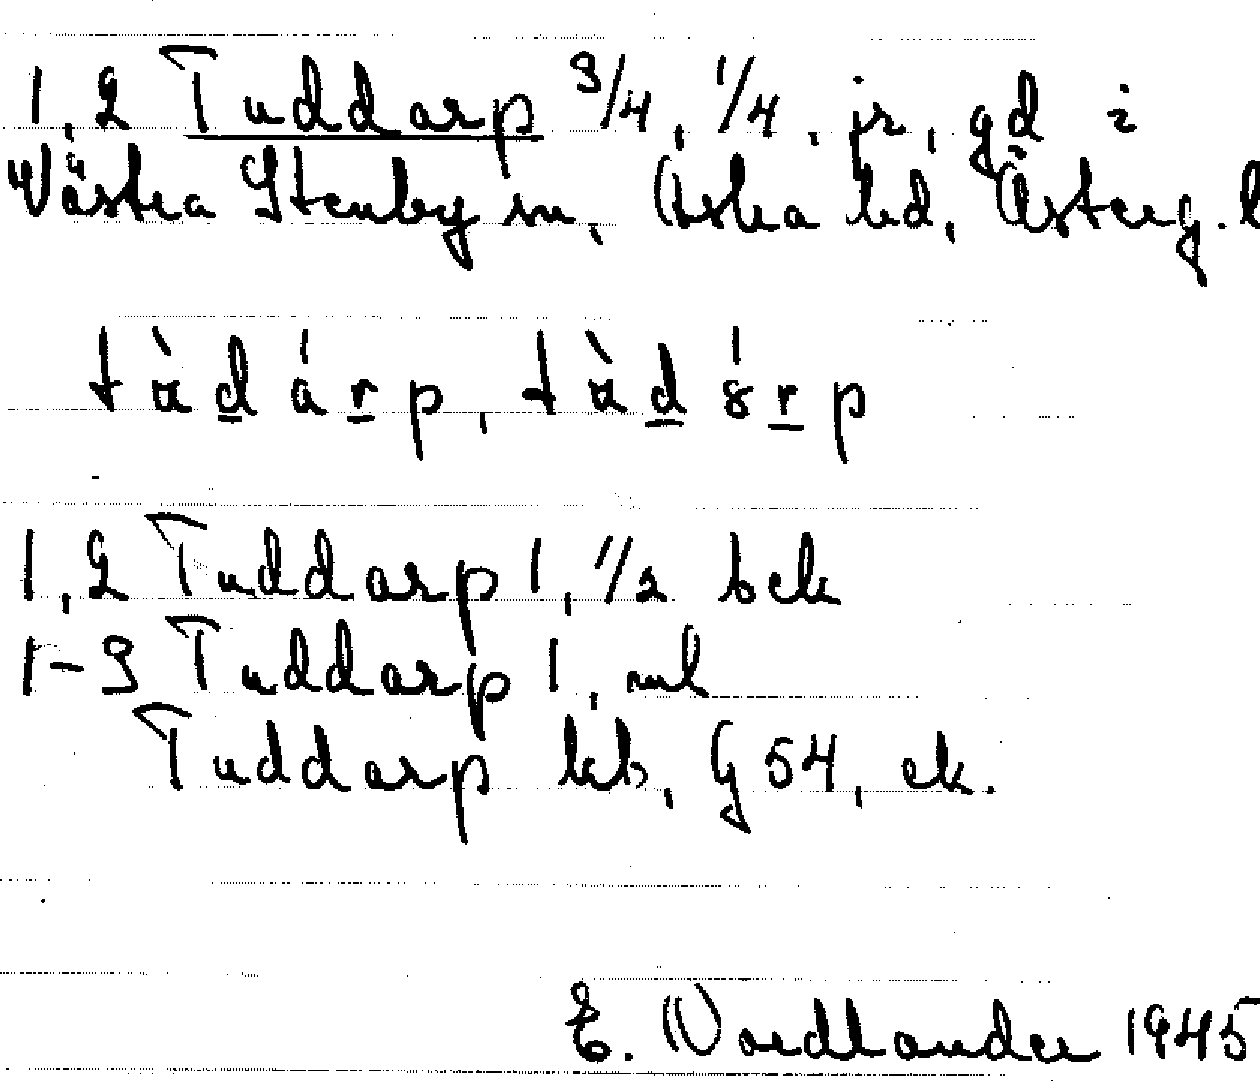 1, 2 Tuddarp 3/4, 1/4. jr, gd i
Västra Stenby sn, Aska hd, Österg. l
tùdárp, tùdərp
1, 2 Tuddarp 1, 1/2 bek
1-3 Tuddarp 1, ml
Tuddarp lab, G 54, ek.
E. Nordlander 1945